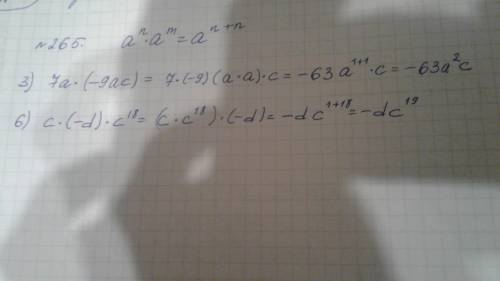 №265. aⁿ·aᵐ = aⁿ⁺ⁿ
3) 7a·(-9ac) = 7·(-9)(a·a)·c = -63a¹⁺¹·c = -63a²c
6) c·(-d)·c¹⁸ = (c·c¹⁸)·(-d) = -dc¹⁺¹⁸ = -dc¹⁹